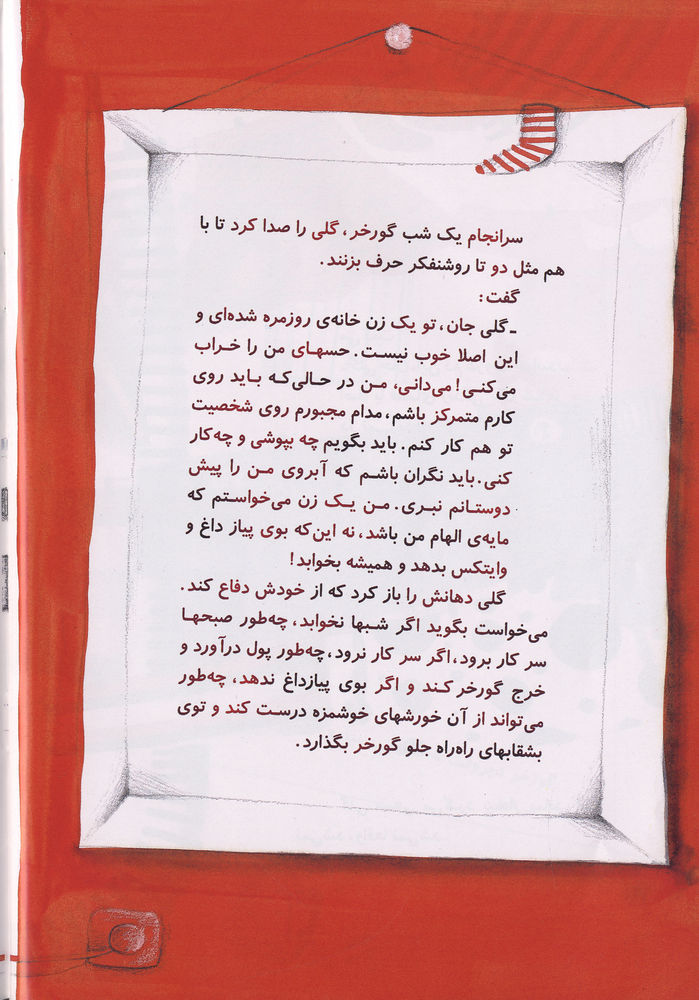 سرانجام یک شب گورخر، گلی را صدا کرد تا با
هم مثل دو تا روشنفکر حرف بزنند.
گفت:
ـ گلی جان، تو یک زن خانه‌ی روزمره شده‌ای و
این اصلا خوب نیست. حسهای من را خراب
می‌کنی! می‌دانی، من در حالی‌که باید روی
کارم متمرکز باشم، مدام مجبورم روی شخصیت
تو هم کار کنم. باید بگویم چه بپوشی و چه‌کار
کنی. باید نگران باشم که آبروی من را پیش
دوستانم نبری. من یک زن می‌خواستم که
مایه‌ی الهام من باشد، نه این‌که بوی پیاز داغ و
وایتکس بدهد و همیشه بخوابد!
گلی دهانش را باز کرد که از خودش دفاع کند.
می‌خواست بگوید اگر شبها نخوابد، چه‌طور صبحها
سر کار برود، اگر سر کار نرود، چه‌طور پول درآورد و
خرج گورخر کند و اگر بوی پیازداغ ندهد، چه‌طور
می‌تواند از آن خورشهای خوشمزه درست کند و توی
بشقابهای راه‌راه جلو گورخر بگذارد.